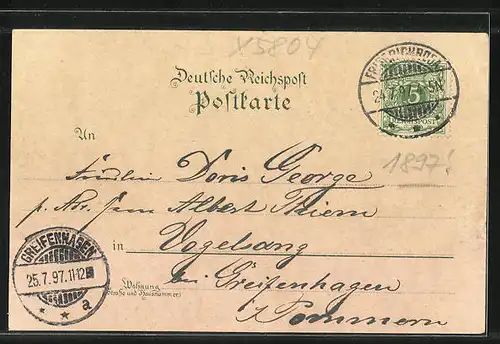 X5804
Deutsche Reichspost
Postkarte
FRIEDRICHRODA
24.7.97. 5-6N.
5
REICHSPOST
1897!
An
Fräulein Doris George
p. Adr. Herrn Albert Thiem
in Vogelsang
bei Greifenhagen
Wohnung
(Straße und Hausnummer)
i/Pommern
GREIFENHAGEN
25.7.97.11-12
* * a